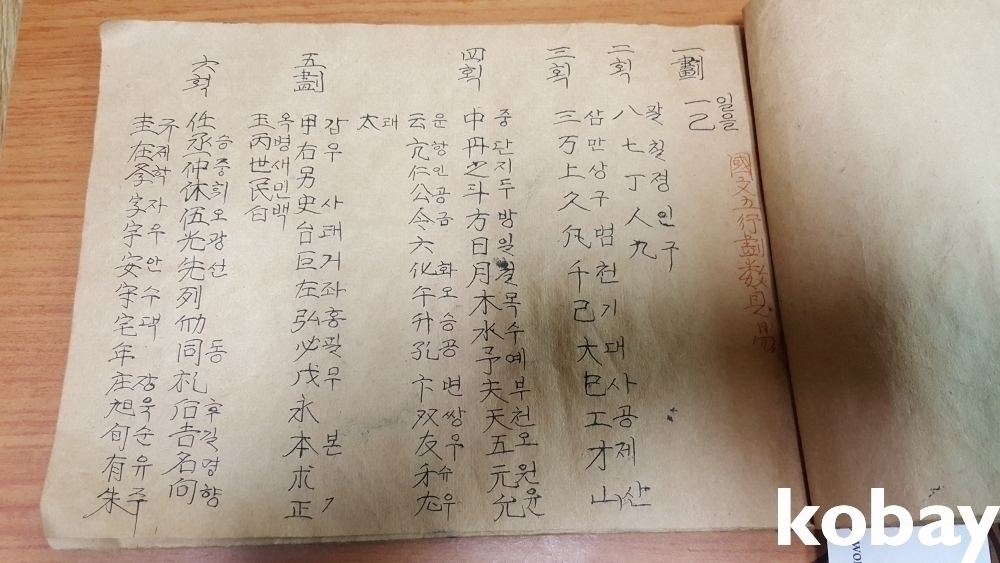 一劃
一 일
乙 을
二획
八七丁人九
팔칠정인구
三획
三万上久凡千己大巳工才山
삼만상구범천기대사공제산
四획
中丹之斗方日月木水予夫天五元允
중단지두방일월목수예부천오원윤
云亢仁公今六化午升孔卞双友
운항인공금 화오승공변쌍우슈우
太 태
五劃
甲右另史台巨左弘必戊永本求正
갑우 사태거좌홍필무 본
玉丙世民白
옥병새민백
六획
任丞仲休伍光先列同札后吉名向
승중희오광선 동 후길명향
圭在字宇安守宅年庄旭旬有朱
규제학자우안수택 장욱순유주
kobay
WOR